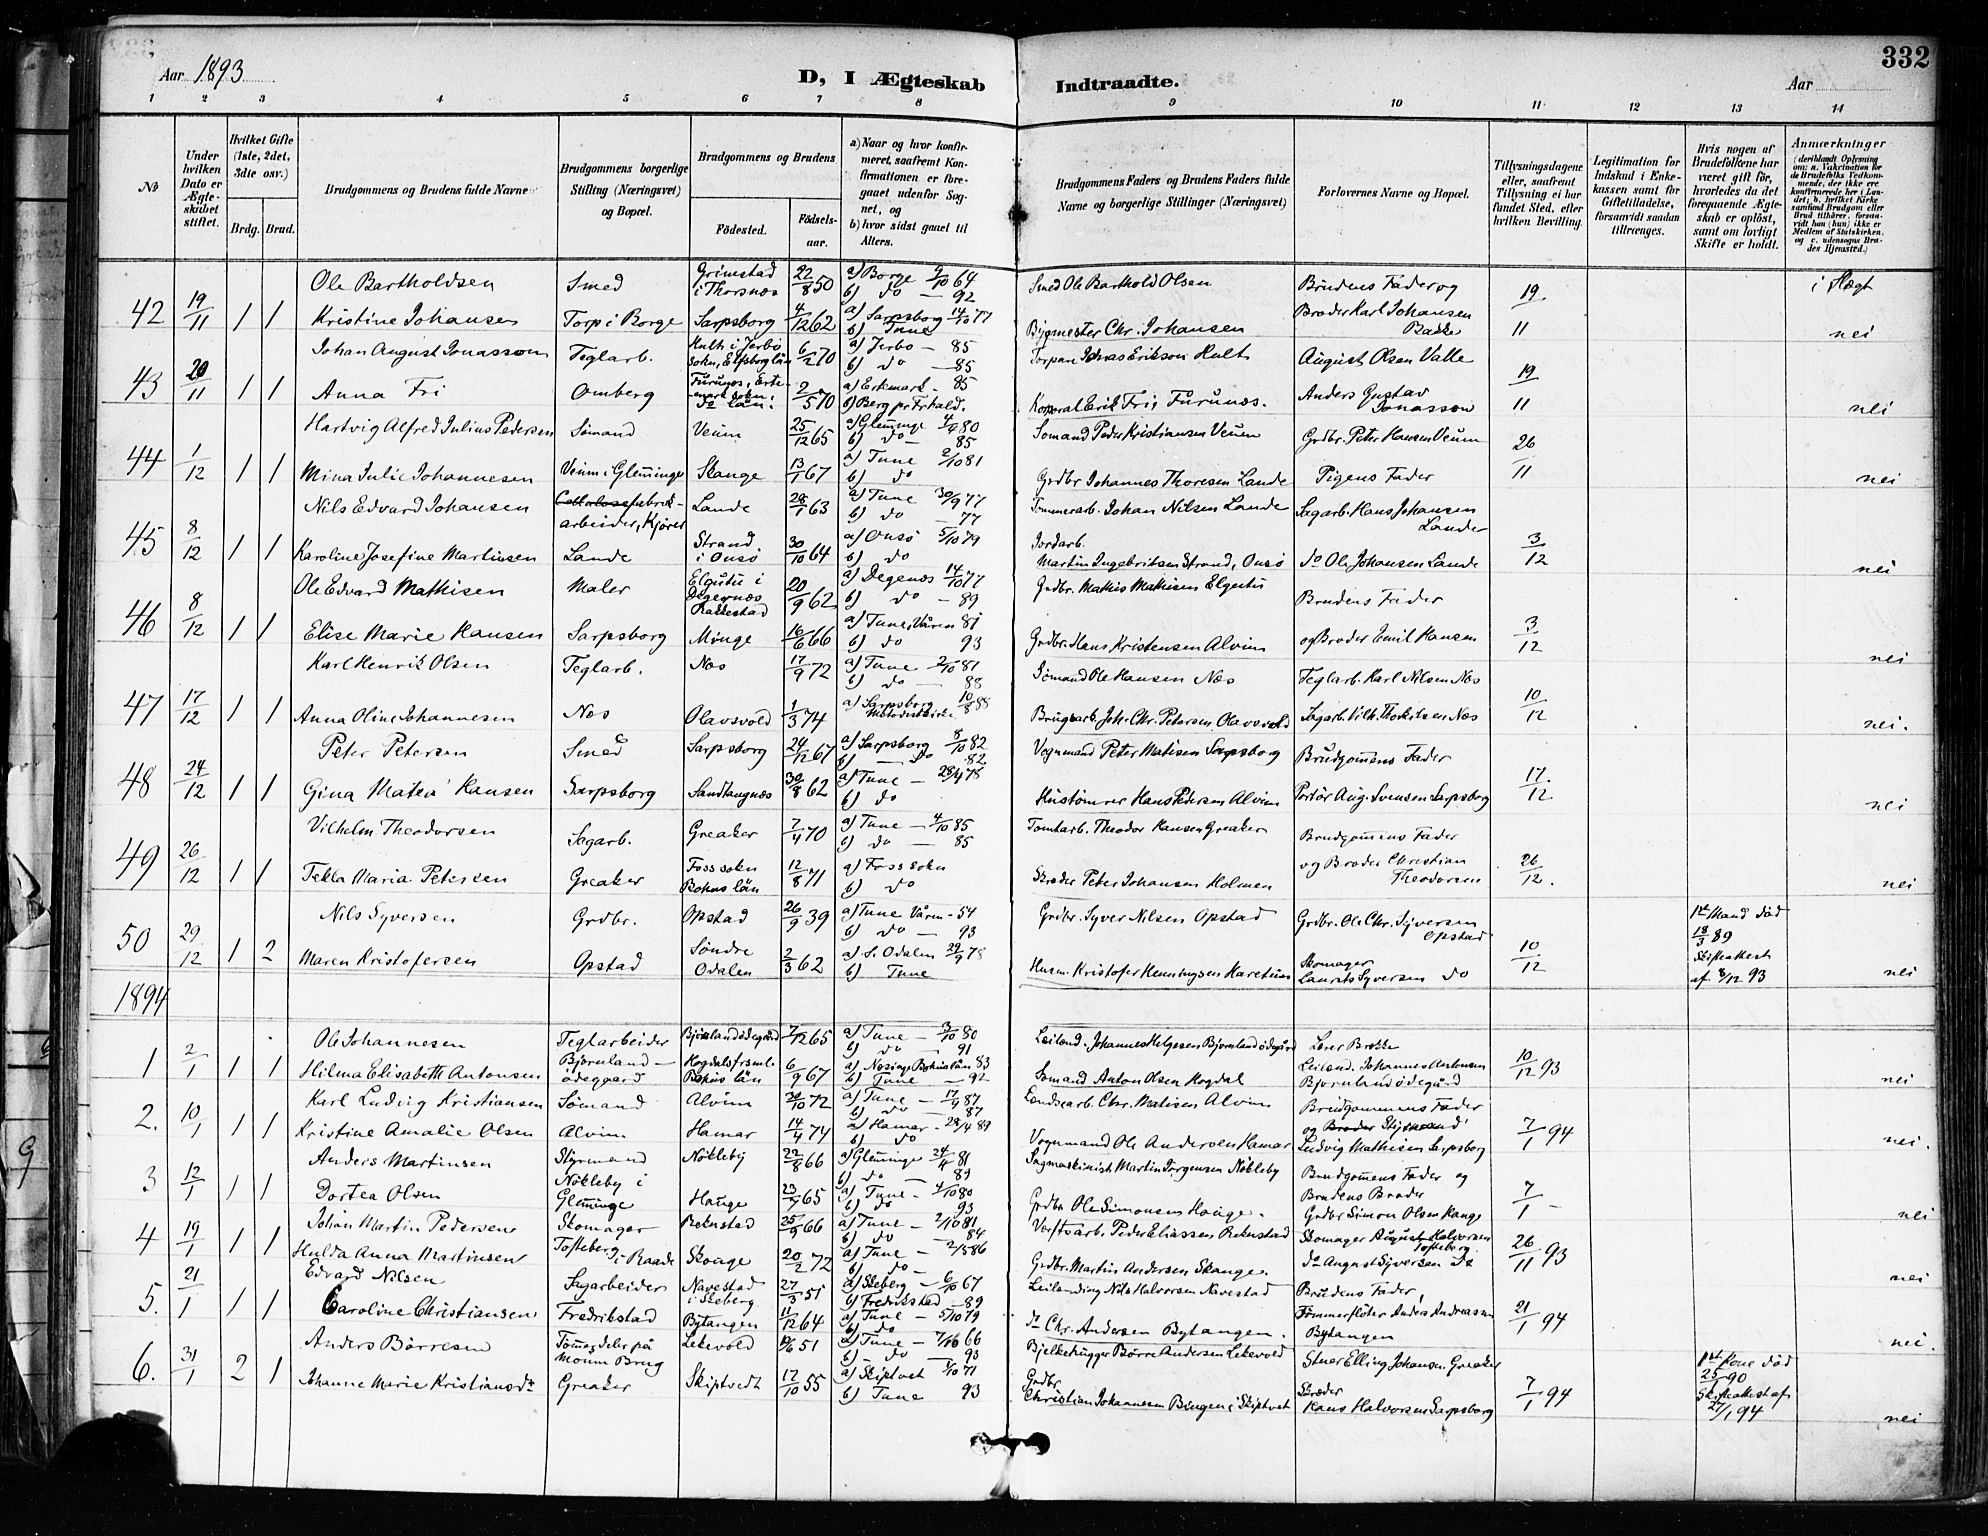 332
Aar 1893
D, I Ægteskab Indtraadte.
Aar
1 2 3 4 5 6 7 8 9 10 11 12 13 14
No
Under hvilken Dato er Ægteskabet stiftet.
Hvilket Gifte (1ste, 2det, 3die osv.)
Brdg. Brud.
Brudgommens og Brudens fulde Navne
Brudgommens borgerlige Stilling (Næringsvei) og Bopæl.
Brudgommens og Brudens
Fødested.
Fødselsaar.
a) Naar og hvor konfirmeret, saafremt Konfirmationen er foregaaet udenfor Sognet, og
b) hvor sidst gaaet til Alters.
Brudgommens Faders og Brudens Faders fulde Navne og borgerlige Stillinger (Næringsvei)
Forlovernes Navne og Bopæl.
Tillysningsdagene eller, saafremt Tillysning ei har fundet Sted, efter hvilken Bevilling.
Legitimation for Indskud i Enkekassen samt for Giftetilladelse, forsaavidt saadan tiltrænges.
Hvis nogen af Brudefolkene har været gift før, hvorledes da det foregaaende Ægteskab er opløst, samt om lovligt Skifte er holdt.
Anmærkninger
42 19/11 1 1
Ole Bartholdsen Smed Grimstad i Thorsnæs 22/8 50 a) Borge 4/10 64 b) do — 92 Smed Ole Barthold Olsen Brudens Fader og 19/11 i Slægt
Kristine Johansen Torp i Borge Sarpsborg 4/12 62 a) Sarpsborg 14/10 77 b) Tune Bygmester Chr. Johansen Broder Karl Johansen Bakke nei
43 20/11 1 1
Johan August Jonasson Teglarb. Hult i Jerbo sokn, Elfsborg län 6/2 70 a) Jerbo — 85 b) do — 85 Torpan Jonas Erikson Hult August Olsen Valle 19/11
Anna Fri Omberg Furunæs, Ertemark sokn, do län. 2/5 70 a) Ertemark — 85 b) Berg pr Frhald. Korporal Erik Fri, Furunæs. Anders Gustav Jonasson nei
44 1/12 1 1
Hartvig Alfred Julius Pedersen Sømand Veum 25/12 65 a) Glemminge 4/9 80 b) do 85 Sømand Peder Kristiansen Veum Grdbr. Peter Hansen Veum 26/11
Mina Julie Johannesen Veum i Glemminge Skange 13/1 67 a) Tune 2/10 81 b) do Grdbr Johannes Thoresen Lande Pigens Fader nei
45 8/12 1 1
Nils Edvard Johansen arbeider, Kjører Lande 28/1 63 a) Tune 30/9 77 b) do — 77 Tømmerarb. Johan Nilsen Lande Sagarb. Hans Johansen Lande 3/12
Karoline Josefine Martinsen Lande Strand i Onsø 30/10 64 a) Onsø 5/10 79 b) do Jordarb. Martin Ingebritsen Strand, Onsø do Ole Johansen Lande nei
46 8/12 1 1
Ole Edvard Mathisen Maler Elgutu i Degernæs Rakkestad 20/9 62 a) Degenæs 14/10 77 b) do — 89 Grdbr. Mathis Mathisen Elgutu Brudens Fader 3/12
Elise Marie Hansen Sarpsborg Minge 16/6 66 a) Tune, Våren 81 b) do 93 Grdbr. Hans Kristensen Alvim og Broder Emil Hansen nei
47 17/12 1 1
Karl Henrik Olsen Teglarb. Næs 17/9 72 a) Tune 2/10 81 b) do — 88 Sømand Ole Hansen Næs Teglarb. Karl Nilsen Næs 10/12
Anna Oline Johannesen Næs Olavsvold 1/3 74 a) Sarpsborg Metodistkirke 10/8 88 Brugsarb. Joh. Chr. Petersen Olavsvold Sagarb. Vilh. Thorkilsen Næs nei.
48 24/12 1 1
Peter Petersen Smed Sarpsborg 24/12 67 a) Sarpsborg 8/10 82 b) — do 82 Vognmand Peter Matisen Sarpsborg Brudgomens Fader 17/12
Gina Matea Hansen Sarpsborg Sandtangnæs 30/8 62 a) Tune — 28/4 78 b) do Hustømrer Hans Pedersen Alvim Portør Aug. Svensen Sarpsborg nei
49 26/12 1 1
Vilhelm Theodorsen Sagarb. Greaker 7/4 70 a) Tune — 4/10 85 b) do — 85 Tomtarb. Theodor Hansen Greaker Brudgomens Fader 26/12.
Tekla Maria Petersen Greaker Foss sokn Bohus län 12/8 71 a) Foss sokn b) do Skræder Peter Johansen Holmen og Broder Christian Theodorsen nei
50 29/12 1 2
Nils Syversen Grdbr. Opstad 26/9 39 a) Tune Våren — 54 b) do — 93 Grdbr. Syver Nilsen Opstad Grdbr. Ole Chr. Syversen Opstad 10/12 1st Mand død 18/3 89 Skifteattest af 8/12 93
Maren Kristofersen Opstad Søndre Odalen 2/3 62 a) S. Odalen 29/9 78 b) Tune Husm. Kristofer Henningsen Skomager Laurits Syversen do nei
1894
1 2/1 1 1
Ole Johannesen Teglarbeider Bjørnlandødegård 7/12 65 a) Tune — 3/10 80 b) do — 91 Leiland. Johannes Helgesen Bjørnlandødegård Lærer Brekke 10/12 93
Hilma Elisabeth Antonsen Bjørnland—ødegaard Hogdals Bohus län 6/9 67 a) Bohus län 83 b) Tune — 92 Sømand Anton Olsen Hogdal Leiland. Johannes Antonsen Bjørnlandødegård nei
2. 10/1 1 1
Karl Ludvig Kristiansen Sømand Alvim 20/10 72 a) Tune — 17/4 87 b) do — 87 Landsearb. Chr. Matisen Alvim Brudgommens Fader 7/1 94
Kristine Amalie Olsen Alvim Hamar 14/4 74 a) Hamar — 28/4 89 b) do Vognmand Ole Andersen Hamar og Broder Styrmand Ludvig Mathisen Sarpsborg nei.
3 12/1 1 1
Anders Martinsen Styrmand Nøkleby 22/8 66 a) Glemminge 24/4 81 b) do — 89 Sagmaskinist Martin Jørgensen Nøkleby Brudgomens Fader og 7/1 —
Dortea Olsen Nøkleby i Glemminge Hauge 23/7 65 a) Tune — 4/10 80 b) do 93 Grdbr Ole Simonsen Hauge. Brudens Broder Grdbr Simon Olsen Hauge nei
4 19/1 1 1
Johan Martin Pedersen Skomager Rekustad 25/9 66 a) Tune — 2/10 81 b) do — 84 Værftsarb. Peder Eliassen Rekustad Skomager August Halvorsen Tofteberg 26/11 93
Hulda Anna Martinsen Tofteberg i Raade Skouge 20/2 72 a) Tune — 2/5 86 b) do — Grdbr. Martin Andersen Skange do August Syversen do nei
5. 21/1 1 1
Edvard Nilsen Sagarbeider Navestad i Skeberg 27/3 51 a) Skeberg — 6/10 67 b) Fredrikstad — 89 Leilænding Nils Halvorsen Navestad Brudens Fader, 21/1 94
Caroline Christiansen Fredrikstad Bytangen 11/12 64 a) Tune — 5/10 79 b) do do Chr. Andersen Bytangen. Tømmerfløter Anders Andreassen Bytangen nei.
6. 31/1 2 1
Anders Børresen på Moum Brug Lekevold 12/6 51 a) Tune — 7/10 66 b) do — 93 Bjelkehugger Børre Andersen Lekevold Stuer Elling Johansen Greaker 7/1 94 1st Kone død 25/1 90 Skifteattest af 27/1 94
Johanne Marie Kristiansdtr Greaker Skiptvedt 17/10 55 a) Skiptvet 1/10 71 b) Tune 93 Grdbr. Christian Johannesen Bingen i Skiptvet Skræder Hans Halvorsen Sarpsborg nei